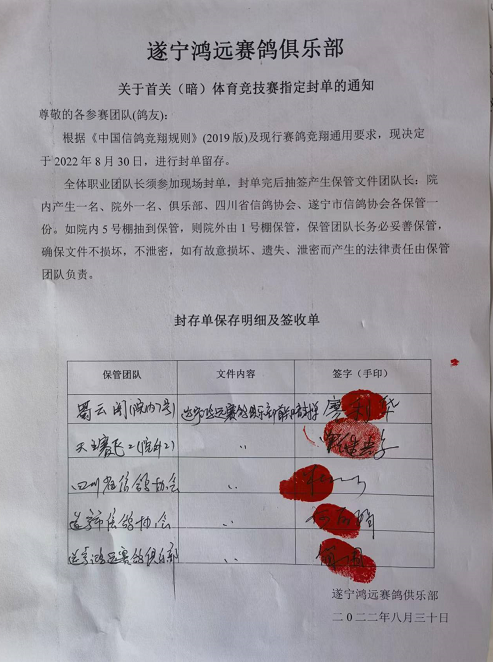 遂宁鸿远赛鸽俱乐部
关于首关（暗）体育竞技赛指定封单的通知
尊敬的各参赛团队(鸽友)：
根据《中国信鸽竞翔规则》(2019版)及现行赛鸽竞翔通用要求，现决定
于2022年8月30日，进行封单留存。
全体职业团队长须参加现场封单，封单完后抽签产生保管文件团队长：院
内产生一名、院外一名、俱乐部、四川省信鸽协会、遂宁市信鸽协会各保管一
份。如院内5号棚抽到保管，则院外由1号棚保管，保管团队长务必妥善保管，
确保文件不损坏，不泄密，如有故意损坏、遗失、泄密而产生的法律责任由保管
团队负责。
封存单保存明细及签收单
保管团队 文件内容 签字（手印）
蜀云 (院内7号) 遂宁鸿远赛鸽俱乐部 廖 华
天 赛飞2(院外2) 〃
四川省信鸽协会 〃
遂宁市信鸽协会 〃
遂宁鸿远赛鸽俱乐部 〃
遂宁鸿远赛鸽俱乐部
二0二二年八月三十日